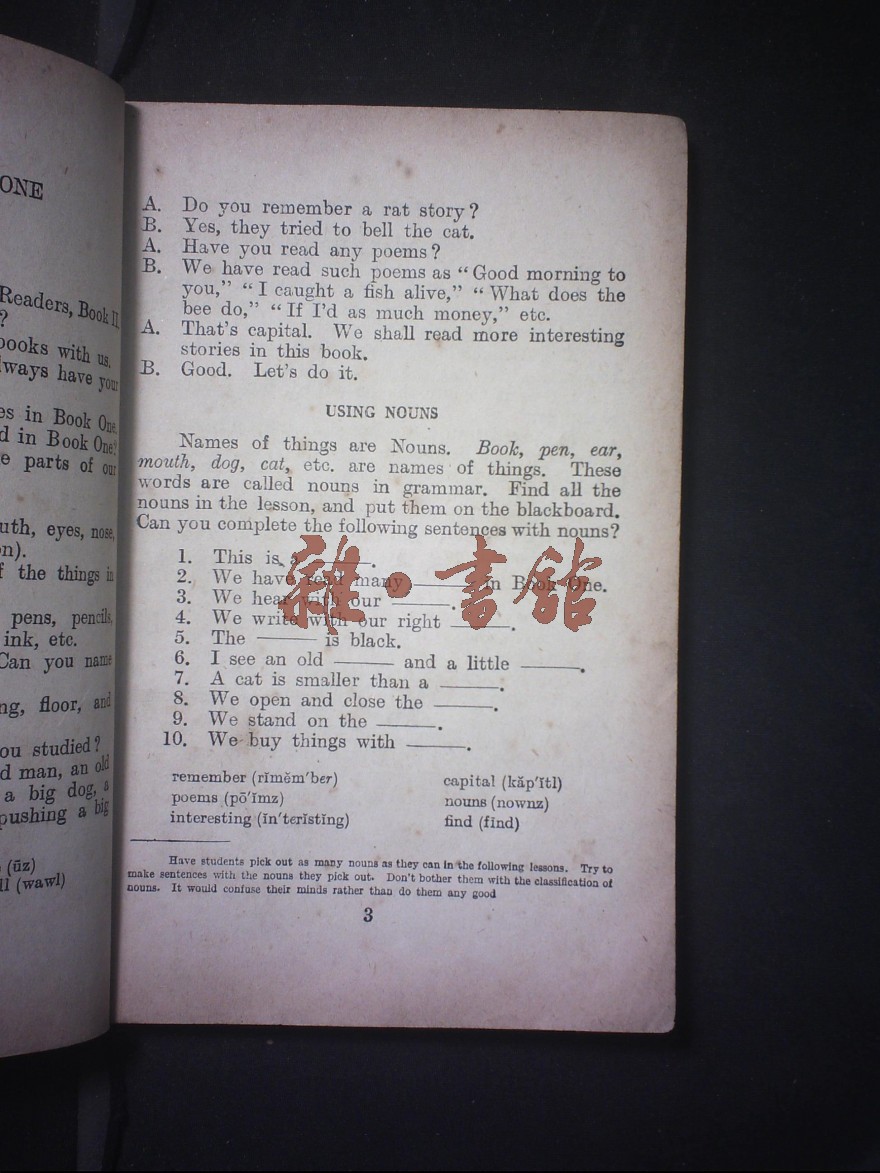 ONE
Readers, Book II,
?
books with us.
lways have your
es in Book One.
d in Book One?
e parts of our
uth, eyes, nose,
n).
f the things in
pens, pencils,
ink, etc.
Can you name
ng, floor, and
ou studied?
d man, an old
a big dog, a
pushing a big
(ūz)
ll (wawl)
A. Do you remember a rat story?
B. Yes, they tried to bell the cat.
A. Have you read any poems?
B. We have read such poems as “Good morning to
you,” “I caught a fish alive,” “What does the
bee do,” “If I'd as much money,” etc.
A. That's capital. We shall read more interesting
stories in this book.
B. Good. Let's do it.
USING NOUNS
Names of things are Nouns. Book, pen, ear,
mouth, dog, cat, etc. are names of things. These
words are called nouns in grammar. Find all the
nouns in the lesson, and put them on the blackboard.
Can you complete the following sentences with nouns?
1. This is a ———.
2. We have read many ——— in Book One.
3. We hear with our ———.
4. We write with our right ———.
5. The ——— is black.
6. I see an old ——— and a little ———.
7. A cat is smaller than a ———.
8. We open and close the ———.
9. We stand on the ———.
10. We buy things with ———.
雜·書館
remember (rĭmĕm′bɛr) capital (kăp′ĭtl)
poems (pō′ĭmz) nouns (nownz)
interesting (ĭn′tɛrĭstĭng) find (fīnd)
Have students pick out as many nouns as they can in the following lessons. Try to
make sentences with the nouns they pick out. Don't bother them with the classification of
nouns. It would confuse their minds rather than do them any good
3